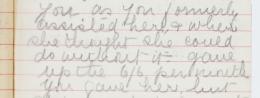 you as you formerly
assisted her, & when
she thought she could
do without it - gave
up the 6/6 per month
you gave her, but